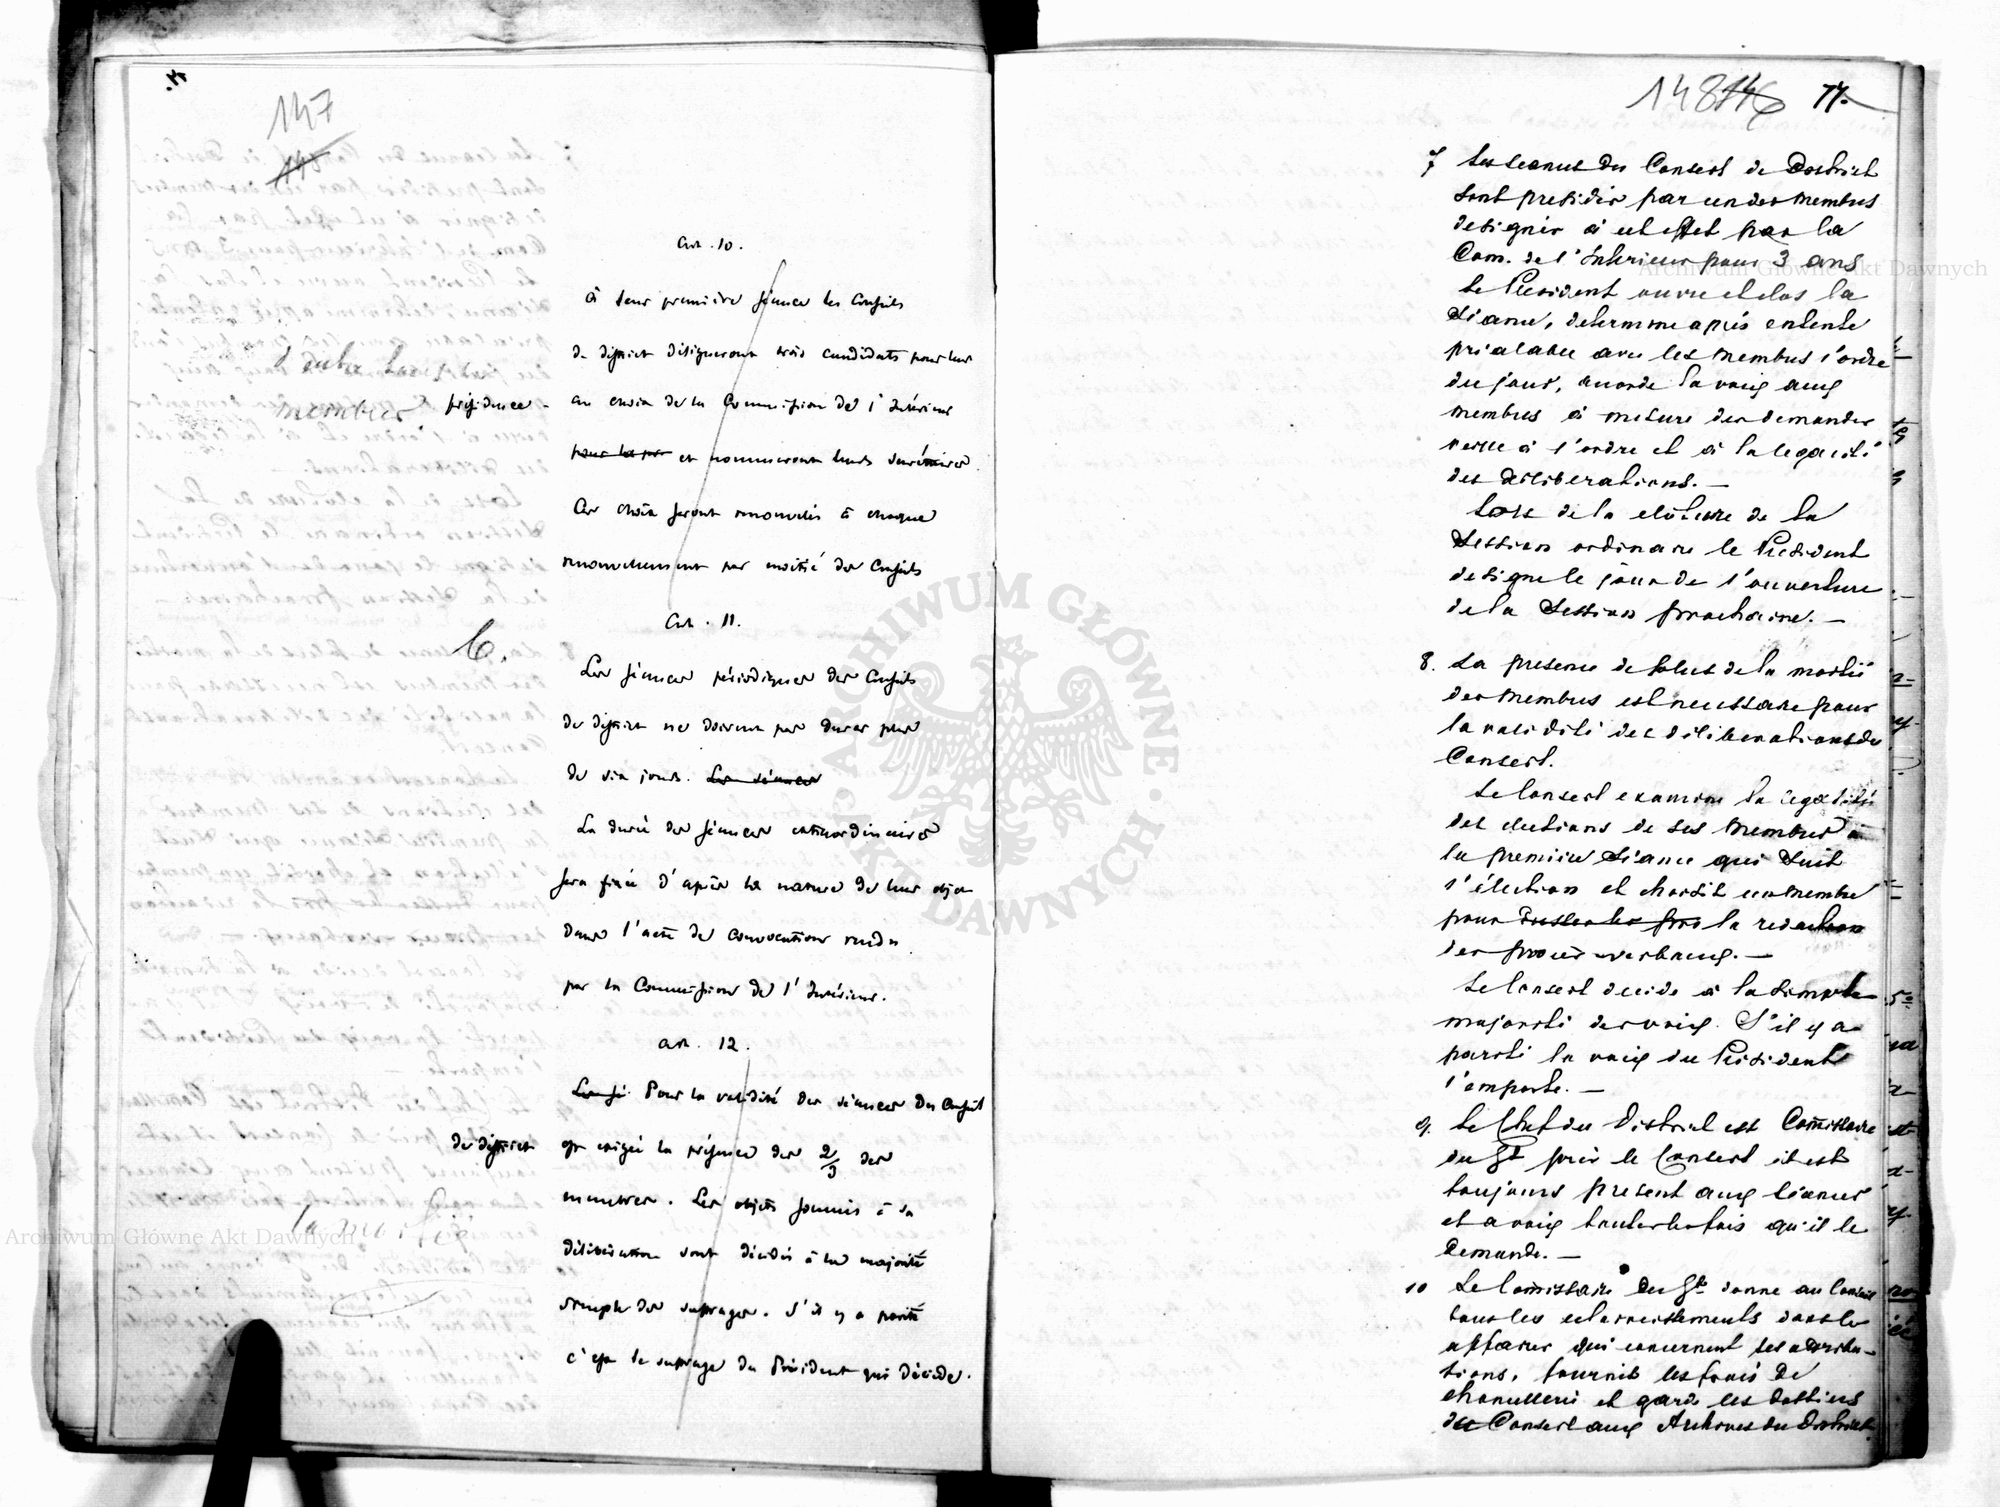 147
Art. 10.
À leur première séance les Conseils
de district désigneront trois candidats pour leur
présidence - au choix de la Commission de l'Intérieur
pour la pr et nommeront leurs secrétaires.
Ces choix seront renouvelés à chaque
renouvellement par moitié des Conseils
membres
Art. 11.
6.
Les séances périodiques des Conseils
de district ne doivent pas durer plus
de six jours. Les séances
La durée des séances extraordinaires
sera fixée d'après la nature de leur objet
dans l'acte de convocation rendu
par la Commission de l'Intérieur.
Art. 12.
Les sé Pour la validité des séances des Conseils
de district est exigée la présence des 2/3 des
membres. Les objets soumis à sa
la moitié
délibération sont décidés à la majorité
simple des suffrages. S'il y a parité
c'est le suffrage du Président qui décide.
148 146 77.
7 Les seances du Conseil de District
sont presidés par un des membres
designés à cet effet par la
Com. de l'Interieur pour 3 ans
Le President ouvre et clos la
séance, determine après entente
prealable avec les membres l'ordre
du jour, accorde la voix aux
membres à mesure des demandes
veille à l'ordre et à la legalité
des deliberations. —
Lors de la clôture de la
Session ordinaire le President
designe le jour de l'ouverture
de la Session prochaine. —
8. La presence de plus de la moitié
des membres est necessaire pour
la validité des déliberations du
Conseil.
Le Conseil examine la legalité
des elections de ses membres à
la premiere séance qui suit
l'élection et choisit un membre
pour la redaction
des procès-verbaux. —
Le Conseil decide à la simple
majorité des voix. S'il y a
parité la voix du Président
l'emporte. —
9. Le Chef du District est Commissaire
du Gt près le Conseil il est
toujours present aux séances
et a voix toutes les fois qu'il le
demande. —
10 Le Comissaire du Gt donne au Conseil
tous les eclaircissements dans les
affaires qui concernent ses attribu-
tions, fournit les frais de
chancellerie et garde les dossiers
du Conseil aux Archives du District
Archiwum Główne Akt Dawnych
Archiwum Główne Akt Dawnych
ARCHIWUM GŁÓWNE AKT DAWNYCH